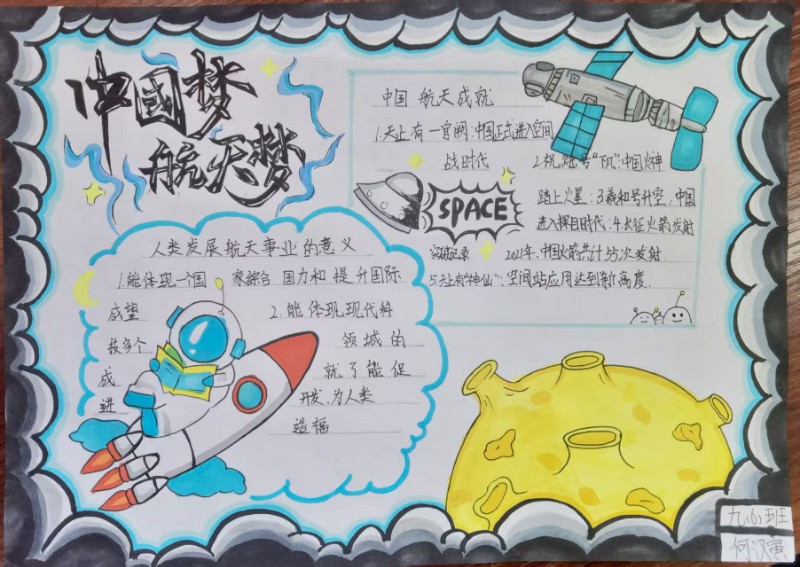 中国梦
航天梦
中国 航天成就
1.天上有一宫阙:中国正式进入空间
战时代 2.祝融号"下凡":中国火神
踏上火星:3.羲和号升空,中国
SPACE
进入探日时代:4.长征火箭发射
突破记录 2021年,中国火箭共计55次发射.
5.天上有"神仙":空间站应用达到新高度.
人类发展航天事业的意义
1.能体现一个国 家综合 国力和 提升国际
威望 2.能体现现代科
技多个 领域的
成 就了能促
进 开发,为人类
造福
九(6)班
何汉寅